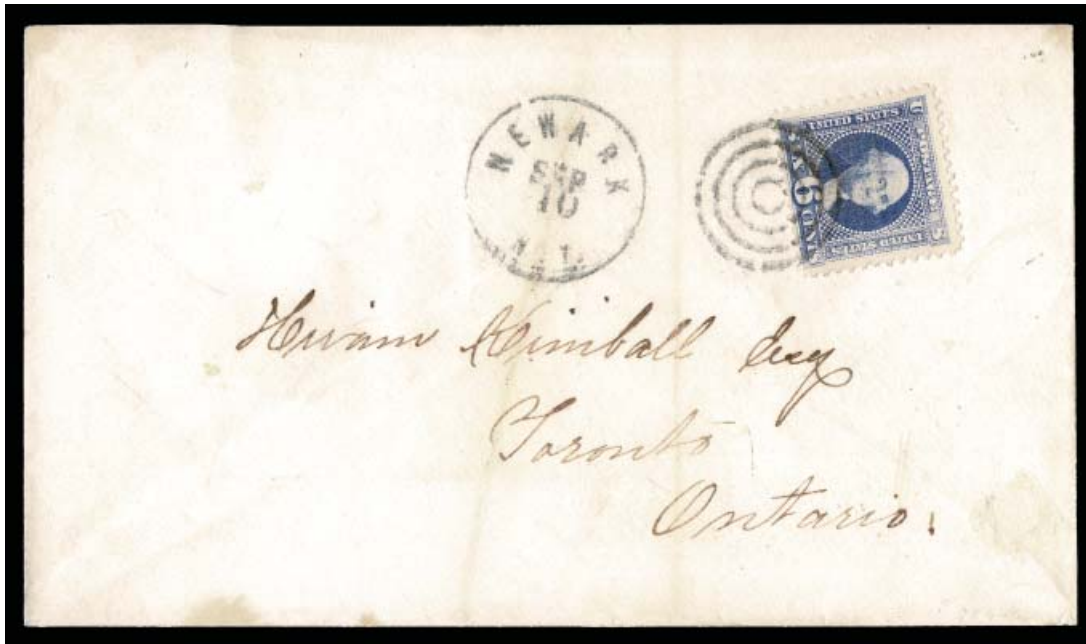 NEWARK
SEP
10
N.
UNITED STATES
POSTAGE
SIX 6 CENTS
UNITED STATES
Hiram Kimball Esq
Toronto
Ontario.